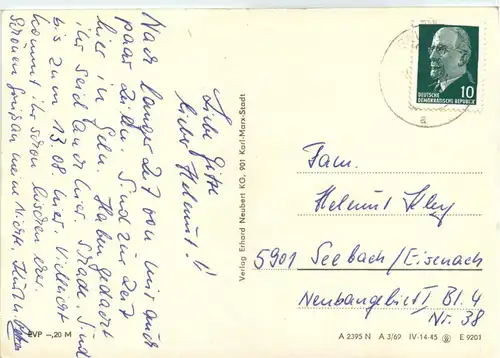 Liebe Gitte
lieber Helmut!
Nach langer Zeit von mir auch
paar Zeilen. Sind zur Zeit
hier in Gehn. Haben gedacht
ihr seid auch hier. Schade. Sind
bis zum 13.08. hier. Vielleicht
kommt ihr schon bischen eher.
Schönen Gruß an meine Nichte.
EVP –,20 M
Verlag Erhard Neubert KG, 901 Karl-Marx-Stadt
10
DEUTSCHE
DEMOKRATISCHE REPUBLIK
a
Fam.
Helmut Kley
5901 Seebach/Eisenach
Neubaugebiet I Bl. 4
Nr. 38
A 2395 N A 3/69 IV-14-45 E 9201